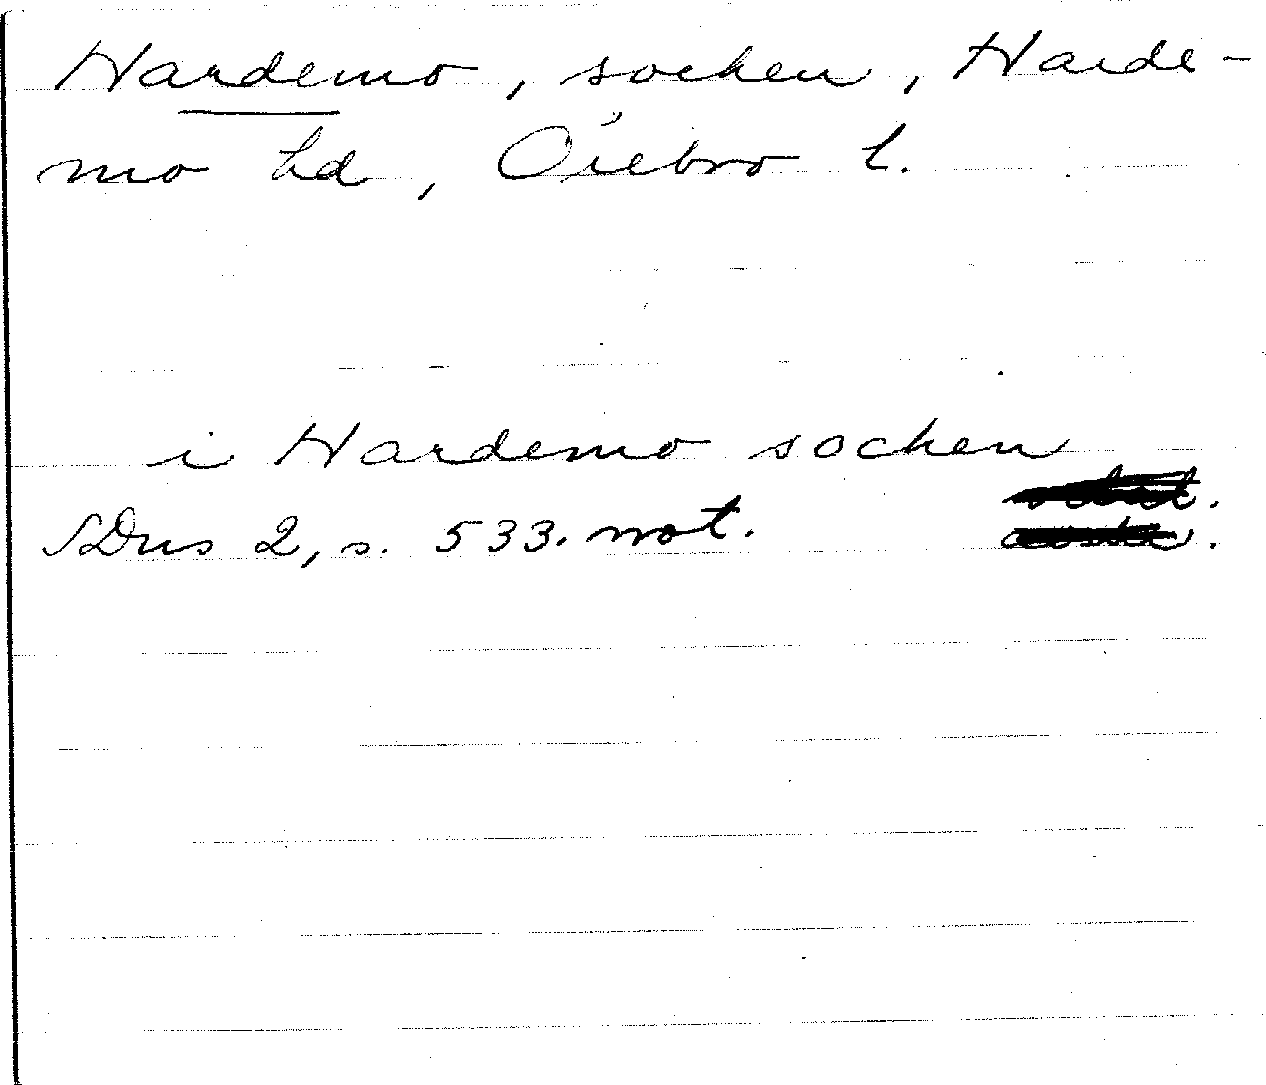 Hardemo, socken, Harde-
mo hd, Örebro l.
i Hardemo socken
SDns 2, s. 533. not.